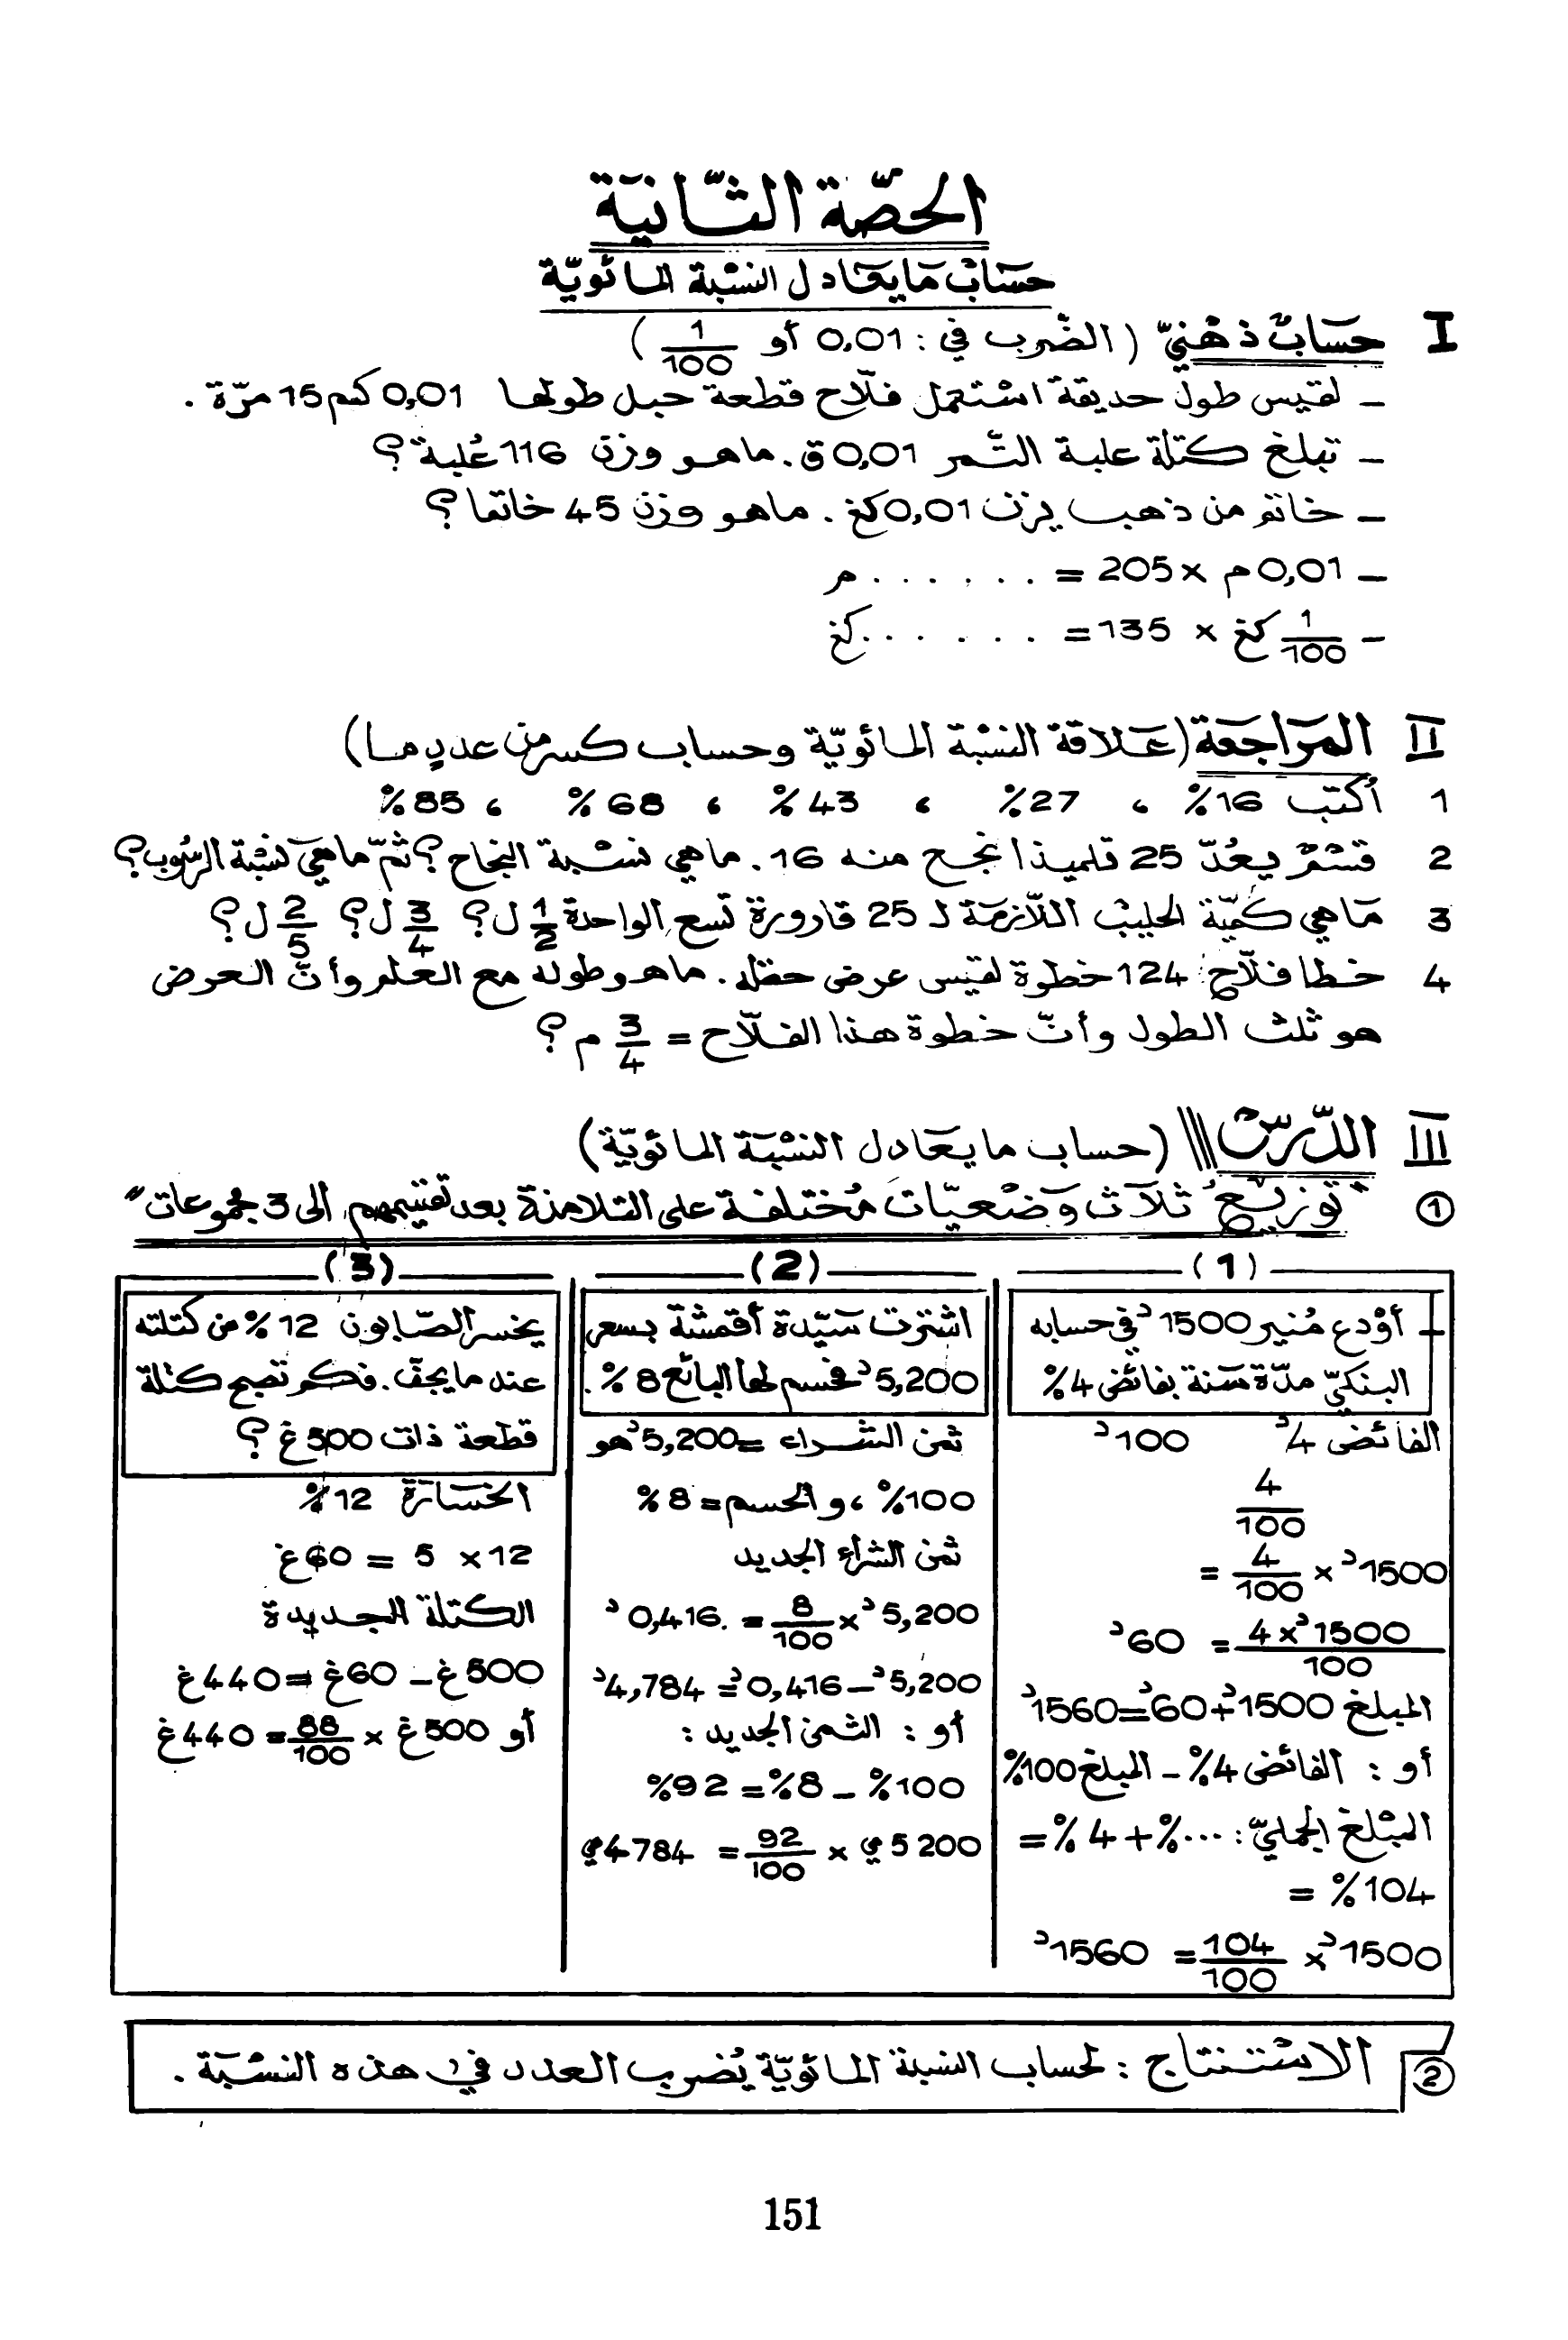 الحصّة الثّانية
حساب ما يعادل النسبة المائويّة
I حساب ذهنيّ ( الضّرب في : 0,01 أو 1/100 )
– لقيس طول حديقة استعمل فلّاح قطعة حبل طولها 0,01 كم 15 مرّة .
– تبلغ كتلة علبة التّمر 0,01 ق . ما هو وزن 116 عُلبة ؟
– خاتم من ذهب يزن 0,01 كغ . ما هو وزن 45 خاتما ؟
– 0,01 م × 205 = . . . . . . م
– 1/100 كغ × 135 = . . . . . . كغ
II المراجعة (علاقة النسبة المائويّة وحساب كسر من عددٍ ما)
1 أكتب 16 % ، 27 % ، 43 % ، 68 % ، 85 %
2 قسم يعُدّ 25 تلميذا نجح منه 16 . ما هي نسبة النجاح ؟ ثمّ ما هي نسبة الرسُوب ؟
3 ما هي كميّة الحليب اللّازمة لـ 25 قارورة تسع الواحدة 1/2 ل ؟ 3/4 ل ؟ 2/5 ل ؟
4 خطا فلّاح 124 خطوة لقيس عرض حقله . ما هو طوله مع العلم وأنّ العرض
هو ثلث الطول وأنّ خطوة هذا الفلّاح = 3/4 م ؟
III الدّرس (حساب ما يعادل النسبة المائويّة)
① "توزيع ثلاث وضعيّات مُختلفة على التلامذة بعد تقسيمهم إلى 3 مجموعات"
(1)
– أودع مُنير 1500د في حسابه
البنكيّ مدّة سنة بفائض 4%
الفائض 4د 100د
4/100
1500د × 4/100 =
1500د × 4 / 100 = 60د
المبلغ 1500د + 60د = 1560د
أو : الفائض 4% – المبلغ 100%
المبلغ الجمليّ : ...% + 4% =
= 104%
1500د × 104/100 = 1560د
(2)
اشترت سيّدة أقمشة بسعر
5,200د فخسم لها البائع 8% .
ثمن الشراء = 5,200د هو
100% ، و الخسم = 8%
ثمن الشراء الجديد
5,200د × 8/100 = 0,416د
5,200د – 0,416د = 4,784د
أو : الثمن الجديد :
100% – 8% = 92%
5200 مي × 92/100 = 4784 مي
(3)
يخسر الصّابون 12% من كتلته
عند ما يجفّ . فكم تصبح كتلة
قطعة ذات 500غ ؟
الخسارة 12%
12 × 5 = 60غ
الكتلة الجديدة
500غ – 60غ = 440غ
أو 500غ × 88/100 = 440غ
② الاستنتاج : لحساب النسبة المائويّة يُضرب العدد في هذه النسبة .
151